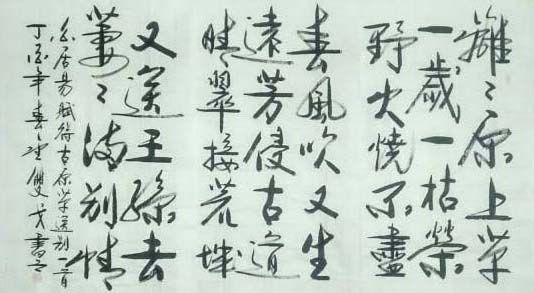 離〻原上草
一歲一枯榮
野火燒不盡
春風吹又生
遠芳侵古道
晴翠接荒城
又送王孫去
萋〻滿別情
白居易賦得古原草送別一首
丁酉年春之望雙戈書